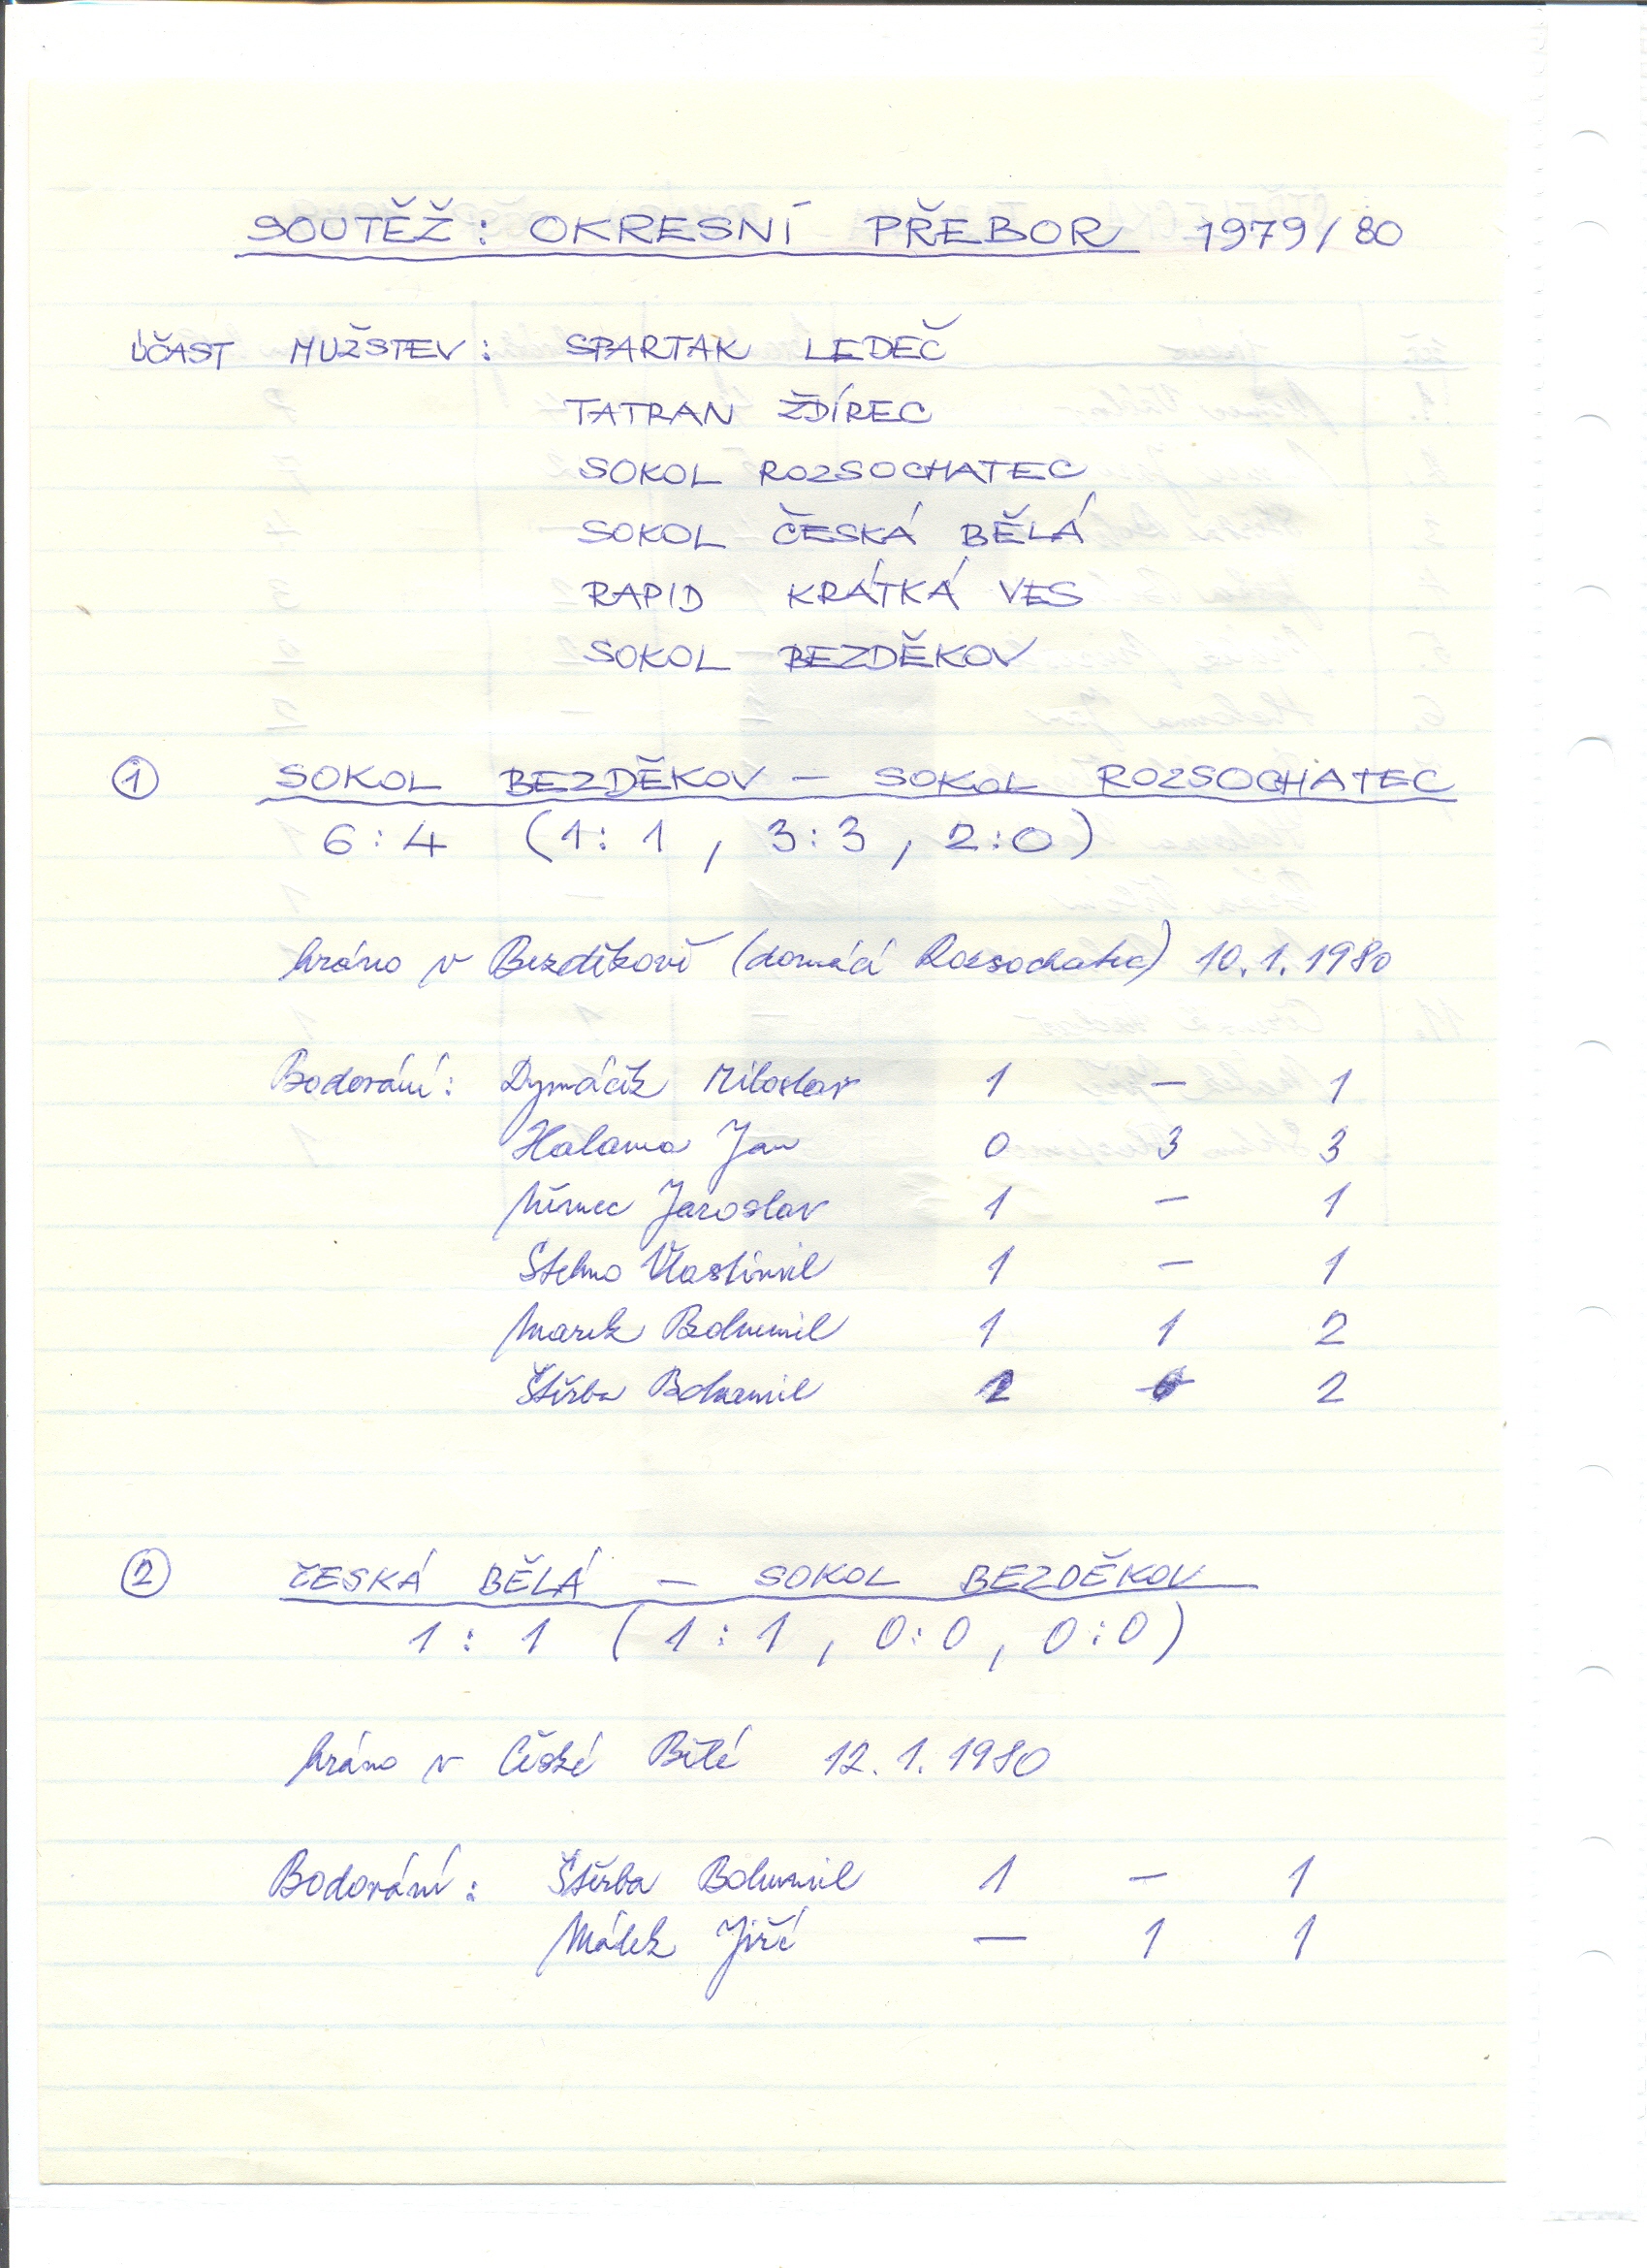 SOUTĚŽ: OKRESNÍ PŘEBOR 1979/80
ÚČAST MUŽSTEV: SPARTAK LEDEČ
TATRAN ŽDÍREC
SOKOL ROZSOCHATEC
SOKOL ČESKÁ BĚLÁ
RAPID KRÁTKÁ VES
SOKOL BEZDĚKOV
1 SOKOL BEZDĚKOV – SOKOL ROZSOCHATEC
6:4 (1:1, 3:3, 2:0)
hráno v Bezděkově (domácí Rozsochatec) 10.1.1980
Bodování: Dymáček Miloslav 1 – 1
Halama Jan 0 3 3
Němec Jaroslav 1 – 1
Stehno Vlastimil 1 – 1
Marek Bohumil 1 1 2
Štěrba Bohumil 2 – 2
2 ČESKÁ BĚLÁ – SOKOL BEZDĚKOV
1:1 (1:1, 0:0, 0:0)
hráno v České Bělé 12.1.1980
Bodování: Štěrba Bohumil 1 – 1
Málek Jiří – 1 1